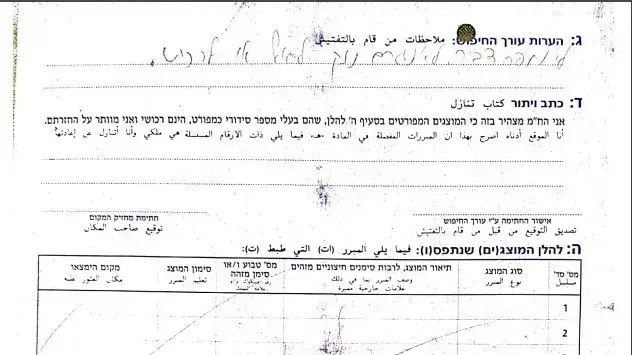 ג: הערות עורך החיפוש: ملاحظات من قام بالتفتيش
ד: כתב ויתור كتاب تنازل
אני הח"מ מצהיר בזה כי המוצגים המפורטים בסעיף ה' להלן, שהם בעלי מספר סידורי כמפורט, הינם רכושי ואני מוותר על החזרתם.
أنا الموقع أدناه اصرح بهذا ان المبررات المفصلة في المادة هـ، فيما يلي ذات الارقام المسلسلة هي ملكي وأنا أتنازل عن إعادتها
אישור החתימה ע"י עורך החיפוש חתימת מחזיק המקום
تصديق التوقيع من قبل من قام بالتفتيش توقيع صاحب المكان
ה: להלן המוצג(ים) שנתפס(ו): فيما يلي المبرر (ات) التي ظبطت (ت):
מס' סד' סוג המוצג תיאור המוצג, לרבות סימנים חיצוניים מזהים מס' טבוע ו/או סימן מזהה סימון המוצג מקום הימצאו
مسلسل نوع المبرر وصف المبرر بما في ذلك علامات خارجية مميزة تعليم المبرر مكان العثور عليه
1
2